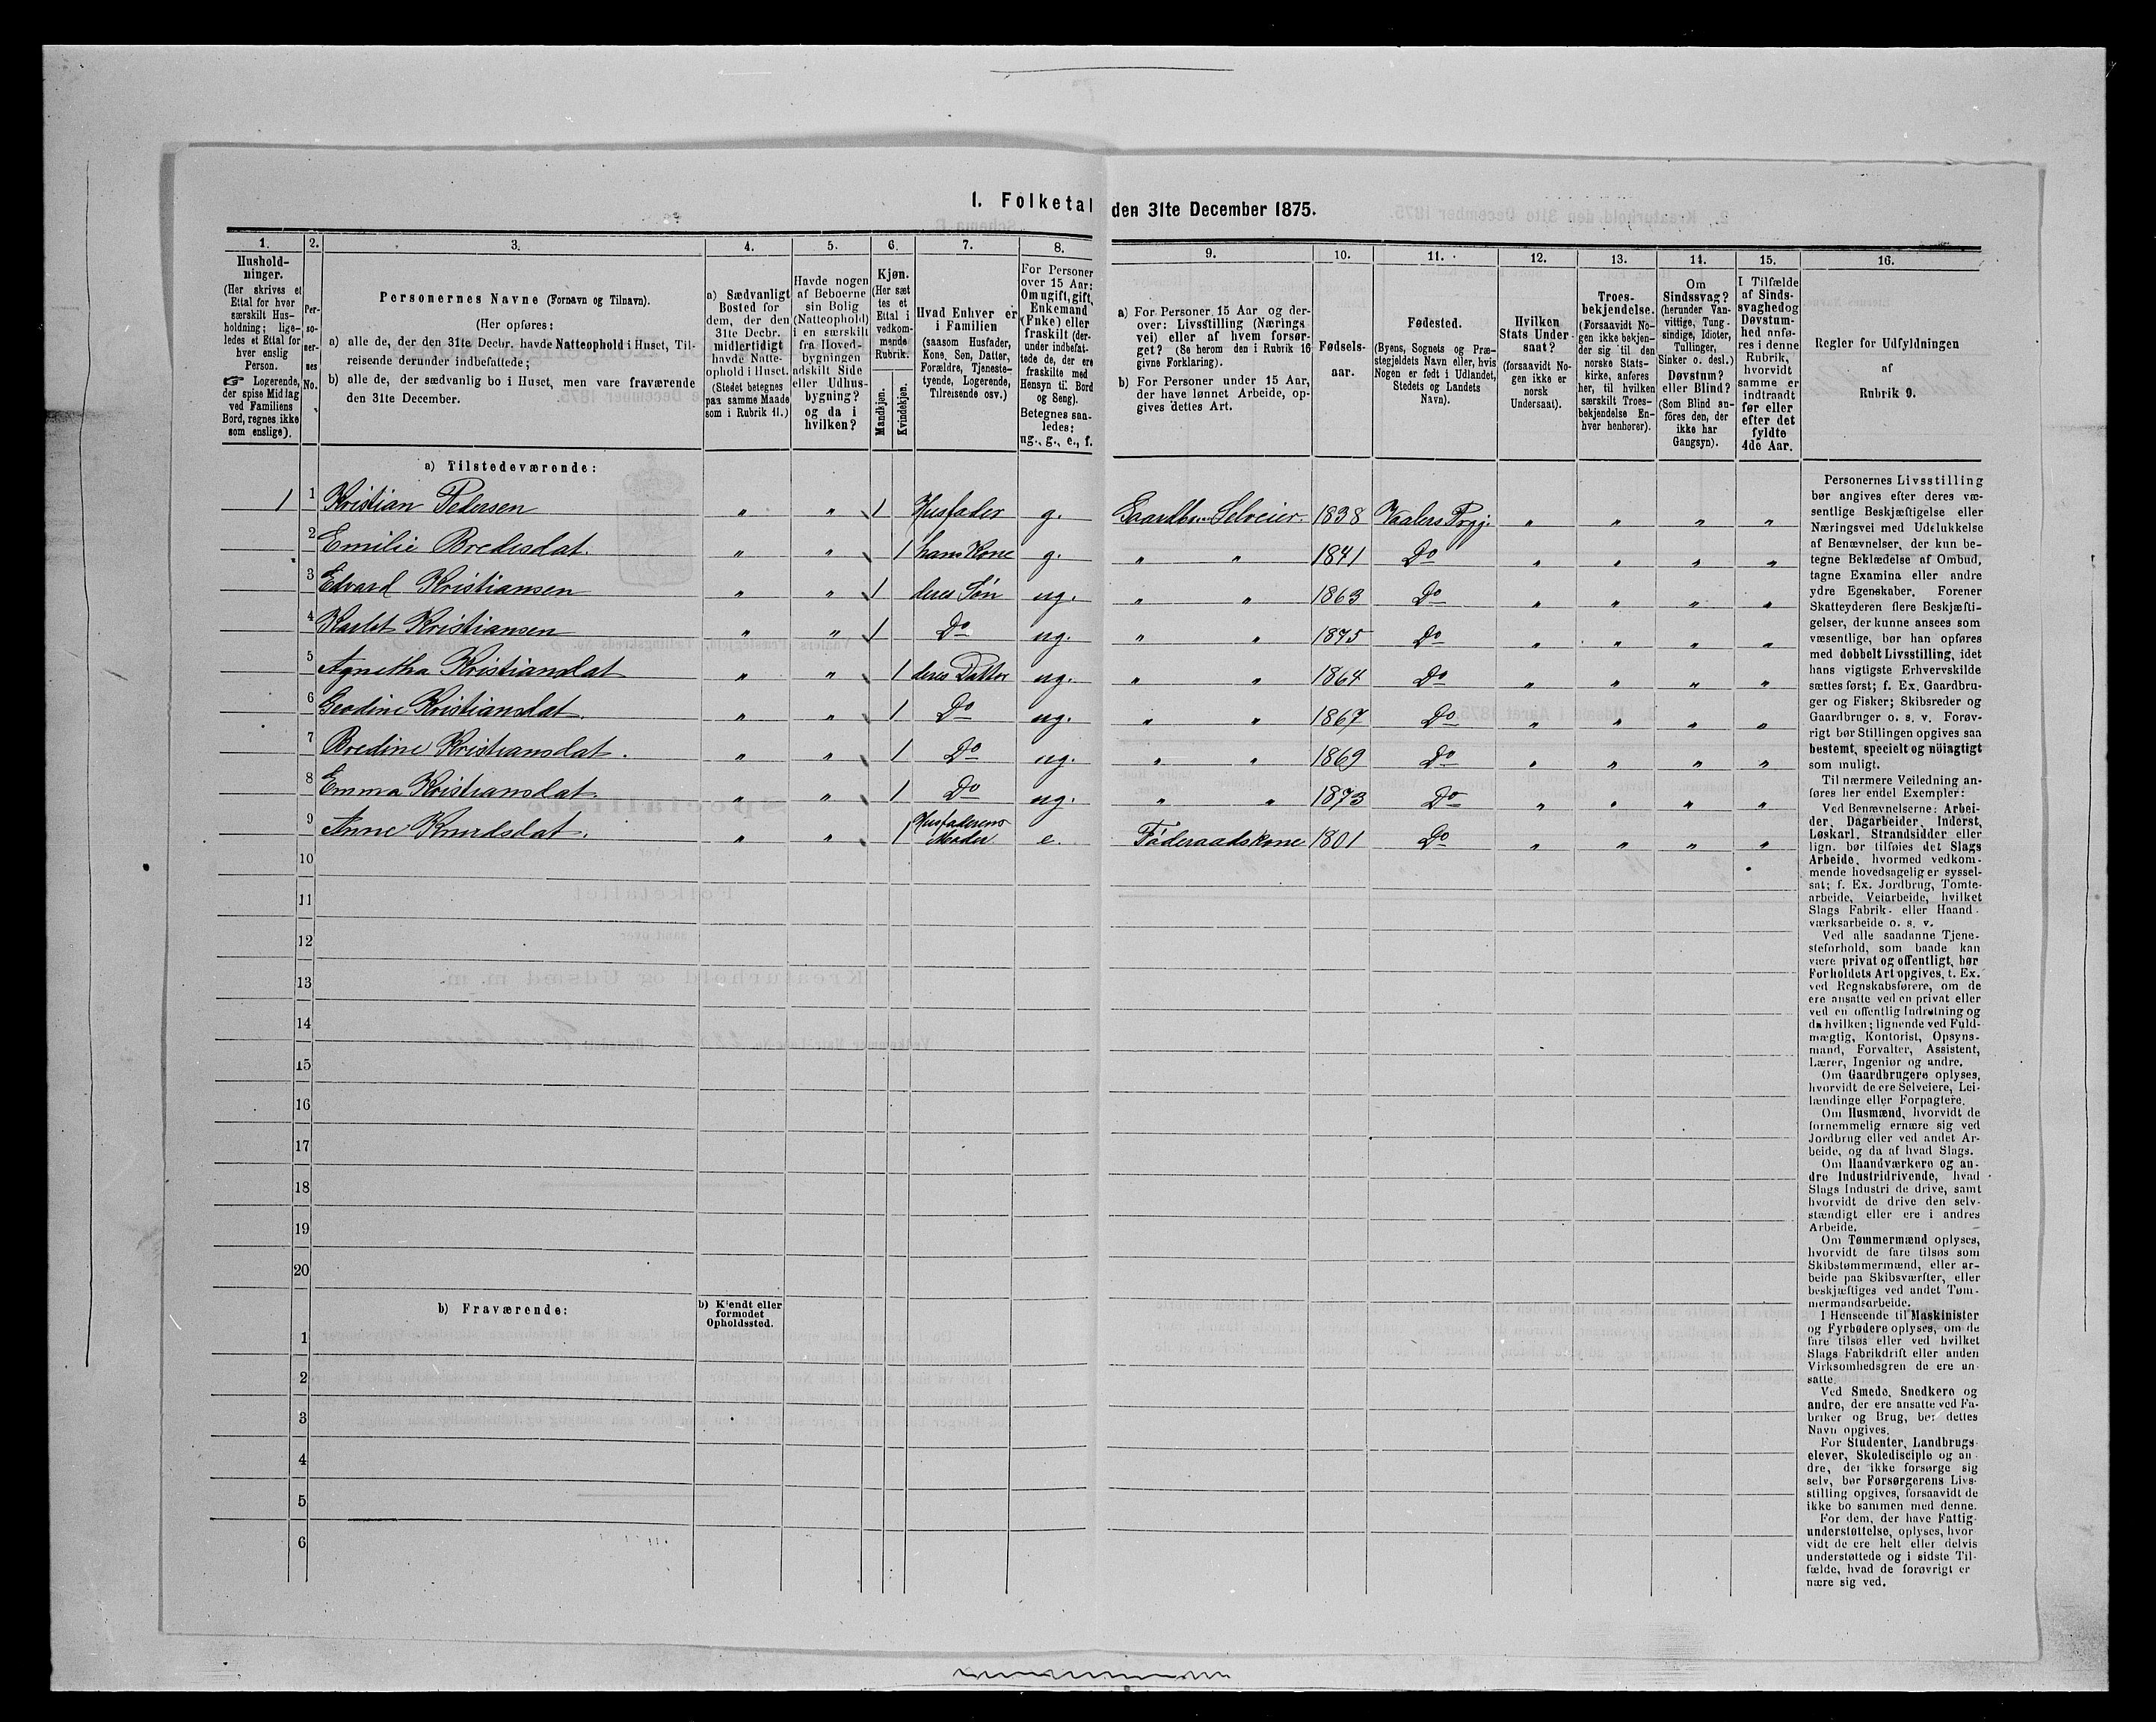 1. Folketal den 31te December 1875.
1.
2.
3.
4.
5.
6.
7.
8.
9.
10.
11.
12.
13.
14.
15.
16.
Hushold-
ninger.
(Her skrives et
Ettal for hver
særskilt Hus-
holdning; lige-
ledes et Ettal for
hver enslig
Person.
☞ Logerende,
der spise Midlag
ved Familiens
Bord, regnes ikke
som enslige).
Per-
so-
ner-
nes
No.
Personernes Navne (Fornavn og Tilnavn).
(Her opføres:
a) alle de, der den 31te Decbr. havde Natteophold i Huset, Til-
reisende derunder indbefattede;
b) alle de, der sædvanlig bo i Huset, men vare fraværende
den 31te December.
a) Sædvanligt
Bosted for
dem, der den
31te Decbr.
midlertidigt
havde Natte-
ophold i Huset.
(Stedet betegnes
paa samme Maade
som i Rubrik 11.)
Havde nogen
af Beboerne
sin Bolig
(Natteophold)
i en særskilt
fra Hoved-
bygningen
adskilt Side
eller Udhus-
bygning?
og da i
hvilken?
Kjøn.
(Her sæt
tes et
Ettal i
vedkom-
mende
Rubrik.
Mandkjøn.
Kvindekjøn.
Hvad Enhver er
i Familien
(saasom Husfader,
Kone, Søn, Datter,
Forældre, Tjeneste-
tyende, Logerende,
Tilreisende osv.)
For Personer
over 15 Aar:
Om ugift, gift,
Enkemand
(Enke) eller
fraskilt (der-
under indbefat-
tede de, der ere
fraskilte med
Hensyn til Bord
og Seng).
Betegnes saa-
ledes:
ug., g., e., f.
a) For Personer 15 Aar og der-
over: Livsstilling (Nærings
vei) eller af hvem forsør-
get? (Se herom den i Rubrik 16
givne Forklaring).
b) For Personer under 15 Aar,
der have lønnet Arbeide, op-
gives dettes Art.
Fødsels-
aar.
Fødested.
(Byens, Sognets og Præ-
stegjeldets Navn eller, hvis
Nogen er født i Udlandet,
Stedets og Landets
Navn).
Hvilken
Stats Under-
saat?
(forsaavidt No-
gen ikke er
norsk
Undersaat).
Troes-
bekjendelse.
(Forsaavidt No-
gen ikke bekjen-
der sig til den
norske Stats-
kirke, anføres
her, til hvilken
særskilt Troes-
bekjendelse En-
hver henhører).
Om
Sindssvag?
(herunder Van-
vittige, Tung-
sindige, Idioter,
Tullinger,
Sinker o. desl.)
Døvstum?
eller Blind?
(Som Blind an-
føres den, der
ikke har
Gangsyn).
I Tilfælde
af Sinds-
svaghed og
Døvstum-
hed anfø-
res i denne
Rubrik,
hvorvidt
samme er
indtraadt
før eller
efter det
fyldte
4de Aar.
Regler for Udfyldningen
af
Rubrik 9.
a) Tilstedeværende:
1 1 Kristian Pedersen " " 1 Husfader g. Gaardbr. Selveier. 1838 Vaalers Prgj. " " " "
2 Emilie Bredesdat. " " 1 hans Kone g. " " 1841 Do " " " "
3 Edvard Kristiansen " " 1 deres Søn ug. " " 1863 Do " " " "
4 Karlot Kristiansen " " 1 Do ug. " " 1875 Do " " " "
5 Agnetha Kristiansdat " " 1 deres Datter ug. " " 1864 Do " " " "
6 Gerdine Kristiansdat. " " 1 Do ug. " " 1867 Do " " " "
7 Bredine Kristiansdat. " " 1 Do ug. " " 1869 Do " " " "
8 Emma Kristiansdat. " " 1 Do ug. " " 1873 Do " " " "
9 Anne Knudsdat. " " 1 Husfaderens Moder. e. Føderaadskone 1801 Do " " " "
10
11
12
13
14
15
16
17
18
19
20
b) Fraværende:
b) Kjendt eller
formodet
Opholdssted.
1
2
3
4
5
6
Personernes Livsstilling
bør angives efter deres væ-
sentlige Beskjæftigelse eller
Næringsvei med Udelukkelse
af Benævnelser, der kun be-
tegne Beklædelse af Ombud,
tagne Examina eller andre
ydre Egenskaber. Forener
Skatteyderen flere Beskjæfti-
gelser, der kunne ansees som
væsentlige, bør han opføres
med dobbelt Livsstilling, idet
hans vigtigste Erhvervskilde
sættes først; f. Ex. Gaardbru-
ger og Fisker; Skibsreder og
Gaardbruger o. s. v. Forøv-
rigt bør Stillingen opgives saa
bestemt, specielt og nøiagtigt
som muligt.
Til nærmere Veiledning an-
føres her endel Exempler:
Ved Benævnelserne: Arbei-
der, Dagarbeider, Inderst,
Løskarl, Strandsidder eller
lign. bør tilføies det Slags
Arbeide, hvormed vedkom-
mende hovedsagelig er syssel-
sat; f. Ex. Jordbrug, Tomte-
arbeide, Veiarbeide, hvilket
Slags Fabrik- eller Haand-
værksarbeide o. s. v.
Ved alle saadanne Tjene-
steforhold, som baade kan
være privat og offentligt, bør
Forholdets Art opgives, t. Ex.
ved Regnskabsførere, om de
ere ansatte ved en privat eller
ved en offentlig Indretning og
da hvilken; lignende ved Fuld-
mægtig, Kontorist, Opsyns-
mand, Forvalter, Assistent,
Lærer, Ingeniør og andre.
Om Gaardbrugere oplyses,
hvorvidt de ere Selveiere, Lei-
lændinge eller Forpagtere.
Om Husmænd, hvorvidt de
fornemmelig ernære sig ved
Jordbrug eller ved andet Ar-
beide, og da af hvad Slags.
Om Haandværkere og an-
dre Industridrivende, hvad
Slags Industri de drive, samt
hvorvidt de drive den selv-
stændigt eller ere i andres
Arbeide.
Om Tømmermænd oplyses,
hvorvidt de fare tilsøs som
Skibstømmermænd, eller ar-
beide paa Skibsværfter, eller
beskjæftiges ved andet Tøm-
mermandsarbeide.
I Henseende til Maskinister
og Fyrbødere oplyses, om de
fare tilsøs eller ved hvilket
Slags Fabrikdrift eller anden
Virksomhedsgren de ere an-
satte.
Ved Smede, Snedkere og
andre, der ere ansatte ved Fa-
briker og Brug, bør dettes
Navn opgives.
For Studenter, Landbrugs-
elever, Skoledisciple og an-
dre, der ikke forsørge sig
selv, bør Forsørgerens Livs-
stilling opgives, forsaavidt de
ikke bo sammen med denne.
For dem, der have Fattig-
understøttelse, oplyses, hvor-
vidt de ere helt eller delvis
understøttede og i sidste Til-
fælde, hvad de forøvrigt er
nære sig ved.